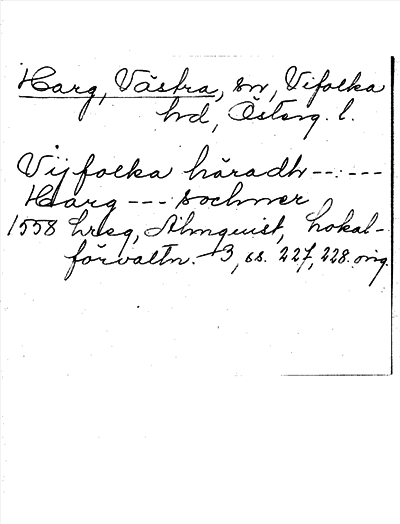 Harg, Västra, sn, Vifolka
hd, Österg. l.
Vijfolka häradh -- . ---
Harg --- sochner
1558 hreg, Almquist, Lokal-
förvaltn. 3, ss. 227, 228. orig.